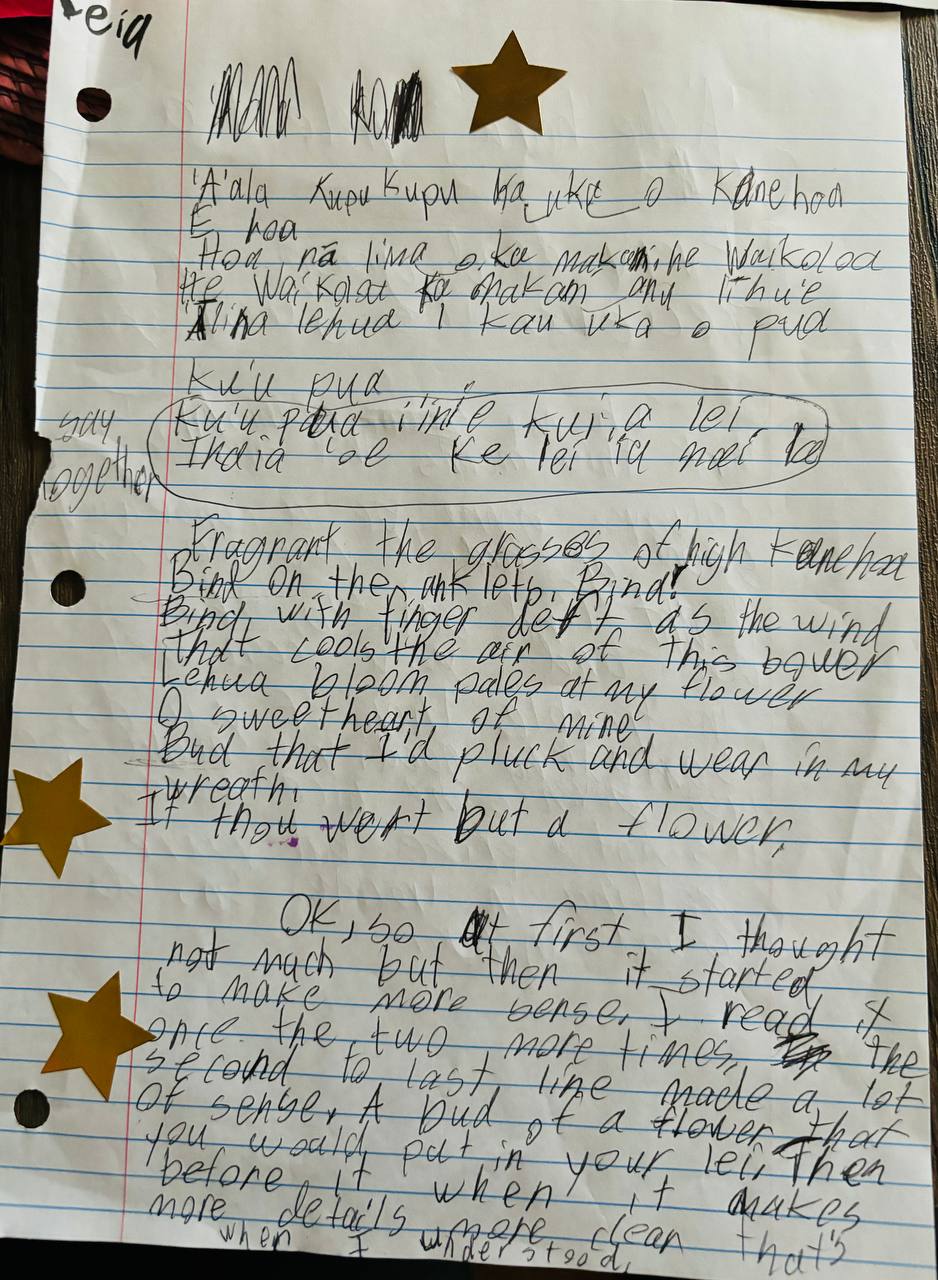 eia
'A'ala kupukupu ka uka o Kanehoa
E hoa
Hoa nā lima o ka makani, he Waikoloa
He Waikoloa ka makani anu līhu'e
'Alina lehua i kau uka o pua
Ku'u pua
Ku'u pua i'ini e kui, a lei,
Inā iā 'oe ke lei ia mai la
say
together
Fragrant the grasses of high Kanehoa
Bind on the anklets, Bind!
Bind, with finger deft as the wind
That cools the air of this bower
Lehua bloom pales at my flower
O sweetheart of mine
Bud that I'd pluck and wear in my
wreath,
If thou wert but a flower,
OK, so at first I thought
not much but then it started
to make more sense, I read it
once the two more times, the
second to last line made a lot
of sense, A bud of a flower that
you would put in your lei, Then
before it when it makes
more details more clear that's
when I understood,